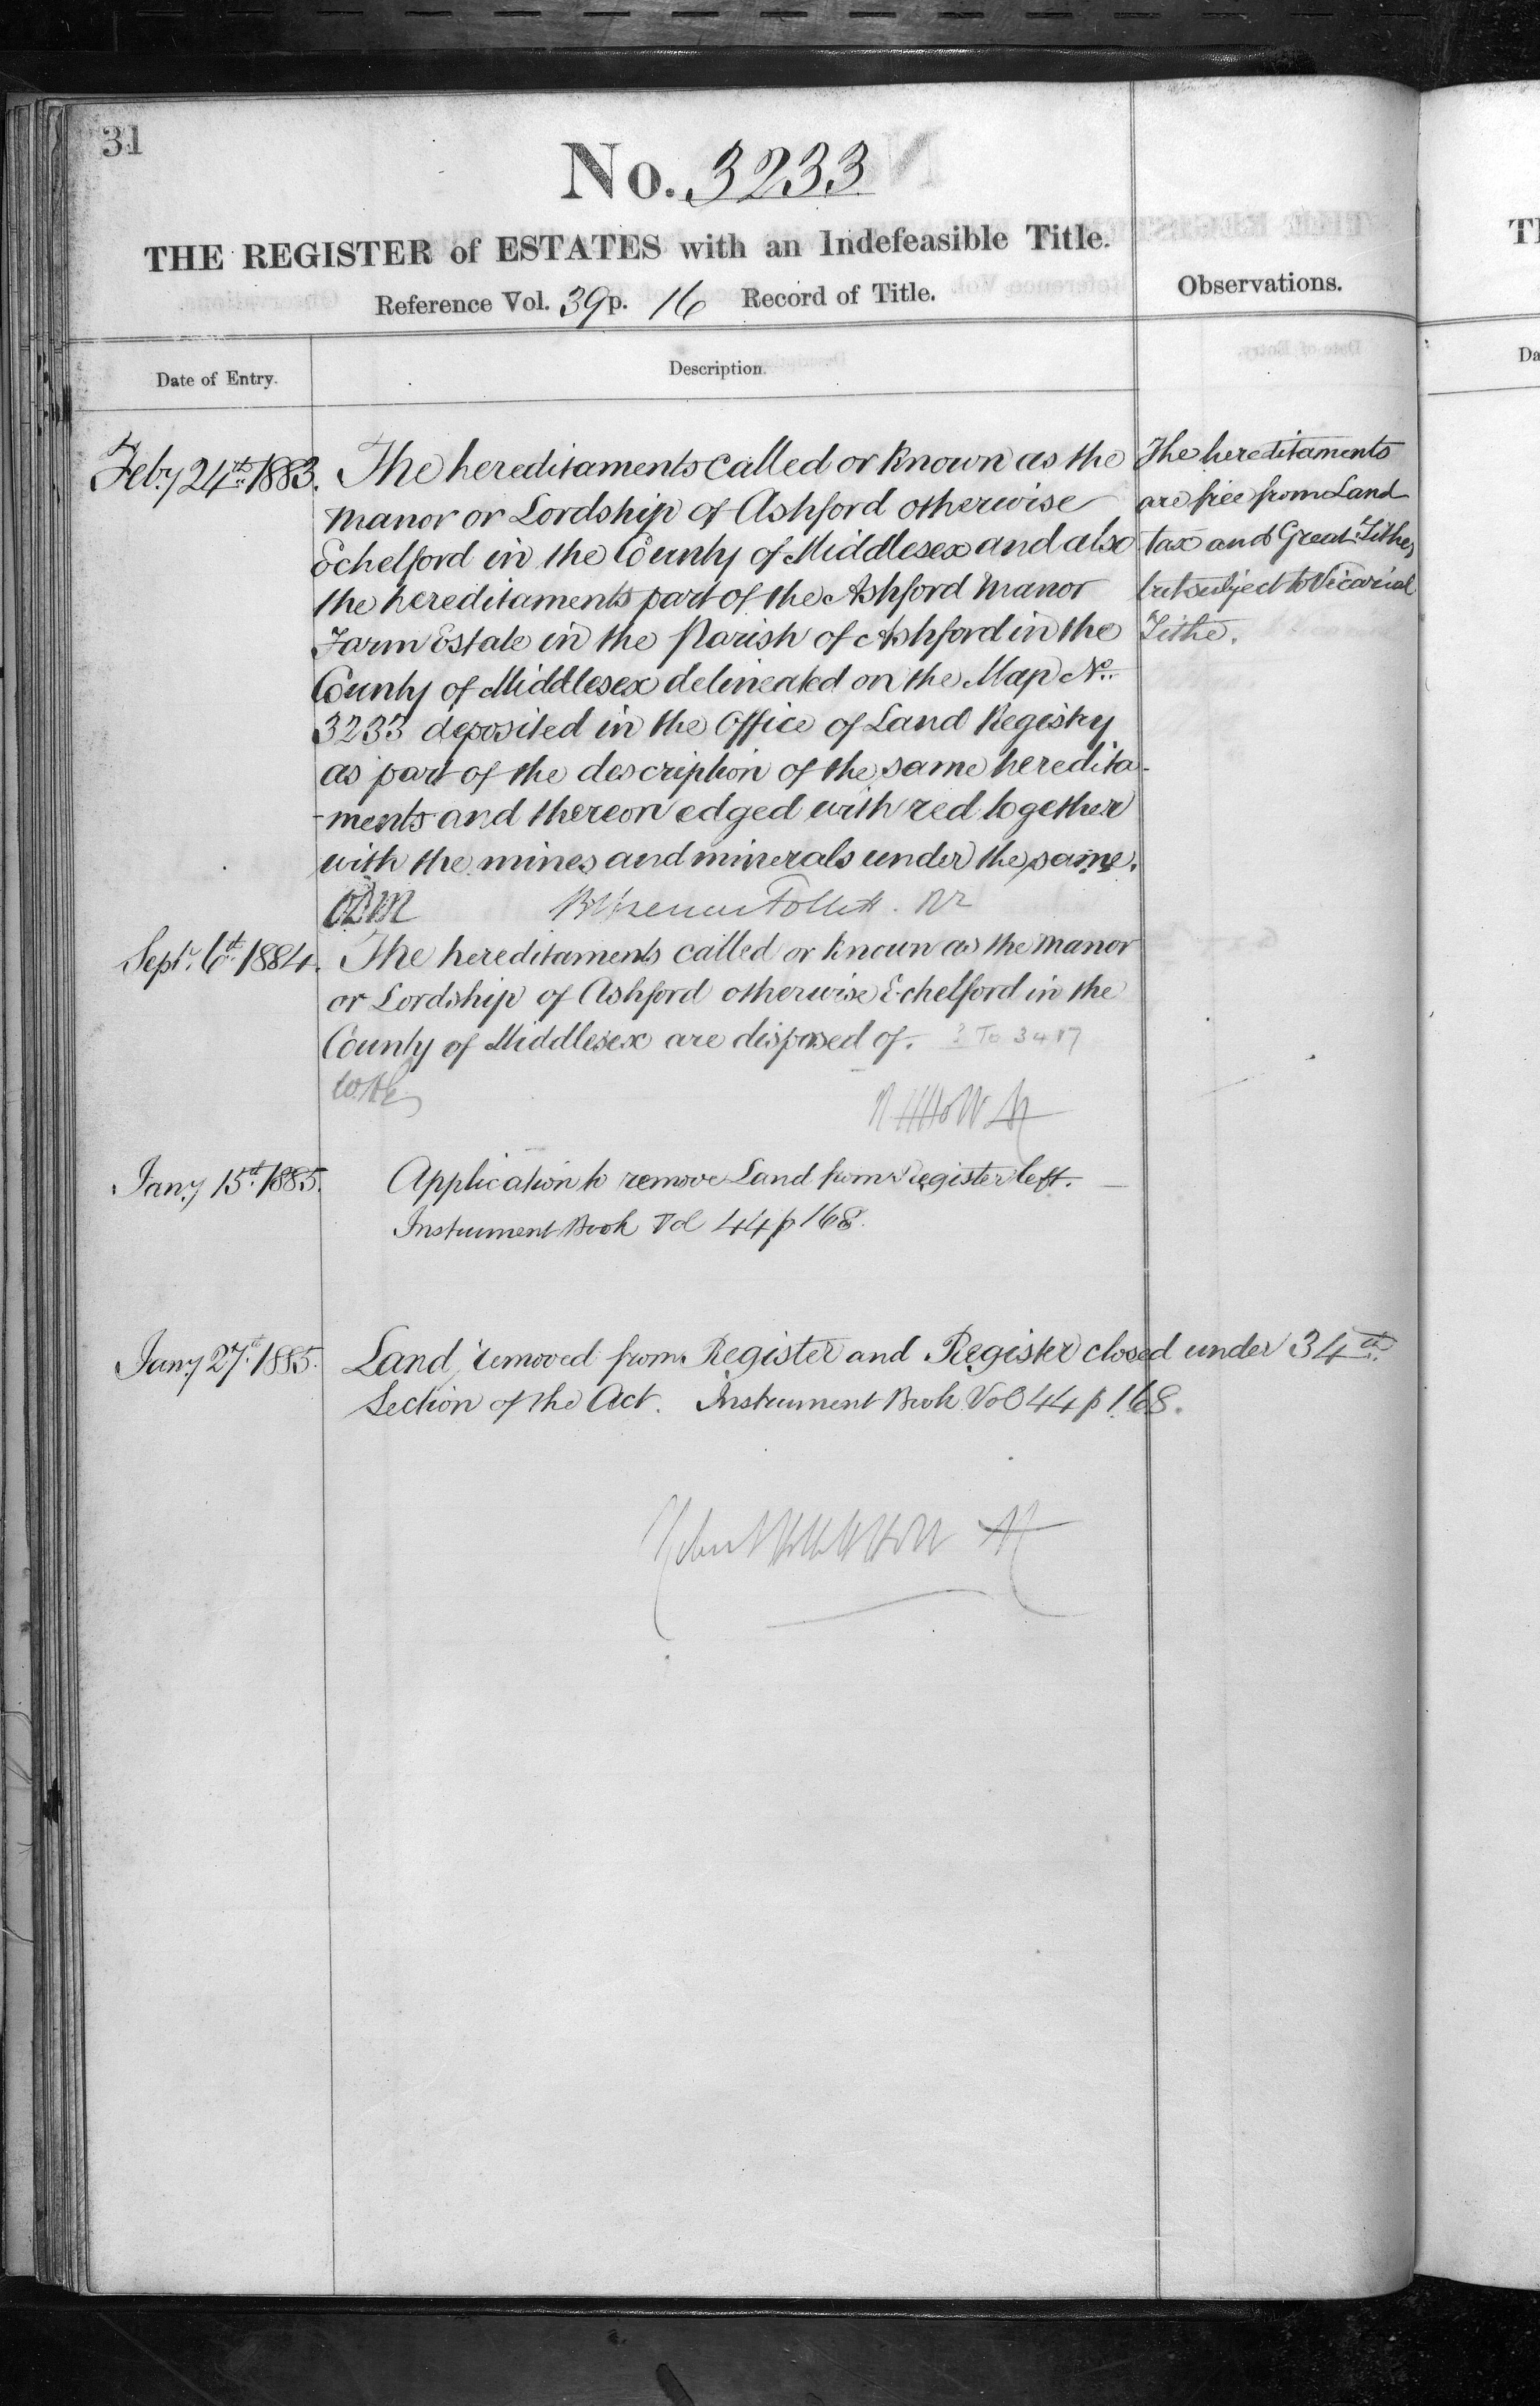 31
No. 3233
THE REGISTER of ESTATES with an Indefeasible Title.
Reference Vol. 39 p. 16 Record of Title.
Observations.
Date of Entry.
Description.
Feby 24th 1883.
The hereditaments called or known as the
manor or Lordship of Ashford otherwise
Echelford in the County of Middlesex and also
the hereditaments part of the Ashford Manor
Farm Estate in the Parish of Ashford in the
County of Middlesex delineated on the Map No.
3233 deposited in the Office of Land Registry
as part of the description of the same heredita-
-ments and thereon edged with red together
with the mines and minerals under the same.
The hereditaments
are free from Land
tax and Great Tithes
but subject to Vicarial
Tithe.
Follett
Sept. 6th 1884.
The hereditaments called or known as the manor
or Lordship of Ashford otherwise Echelford in the
County of Middlesex are disposed of. ? To 3417
Jany 15th 1885.
Application to remove Land from Register left.
Instrument Book Vol 44 p 168.
Jany 27th 1885.
Land removed from Register and Register closed under 34th
Section of the Act. Instrument Book Vol 44 p 168.